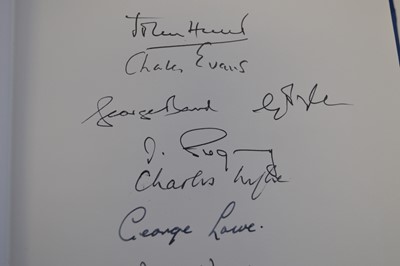 John Hunt
Charles Evans
George Band
Charles Wylie
George Lowe.